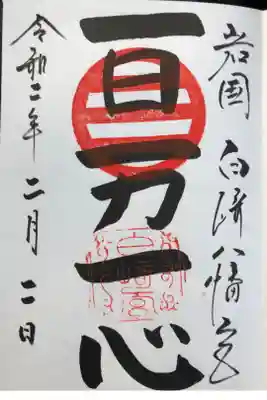 岩国 白崎八幡宮
一日一力一心
令和二年二月二日